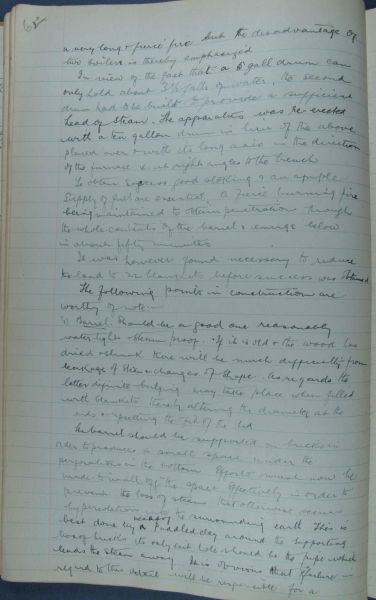 62
a very long & fierce fire but the disadvantage of
two boilers is thereby emphasized
In view of the fact that a 6 gall drum can
only hold about 3½ galls of water, the second
drum had to be built to provide a sufficient
head of steam. The apparatus was re-erected
with a ten gallon drum in lieu of the above
placed over & with its long axis in the direction
of the furnace & at right angles to the trench
To obtain success good stoking & an ample
supply of fuel are essential, a fierce burning fire
being maintained to obtain penetration through
the whole contents of the barrel & emerge below
in about fifty minutes
It was however found necessary to reduce
the load to 22 blankets before success was obtained
The following points in construction are
worthy of note:-
Barrel. Should be a good one reasonably
water tight & steam proof. If it is old & the wood has
dried & shrunk there will be much difficulty from
leakage of steam & changes of shape. As regards the
latter definite bulging may take place when filled
with blankets thereby altering the diameter at the
ends & upsetting the fit of the lid
The barrel should be supported on bricks in
order to produce a small space under the
perforations in the bottom. Efforts must now be
made to wall off the space effectively in order to
prevent the loss of steam that otherwise occurs
by penetration into the surrounding earth. This is
best done by a puddled clay around the supporting
bricks its only exit hole should be the pipe which
leads the steam away. It is obvious that failure in
regard to this detail will be responsible for a